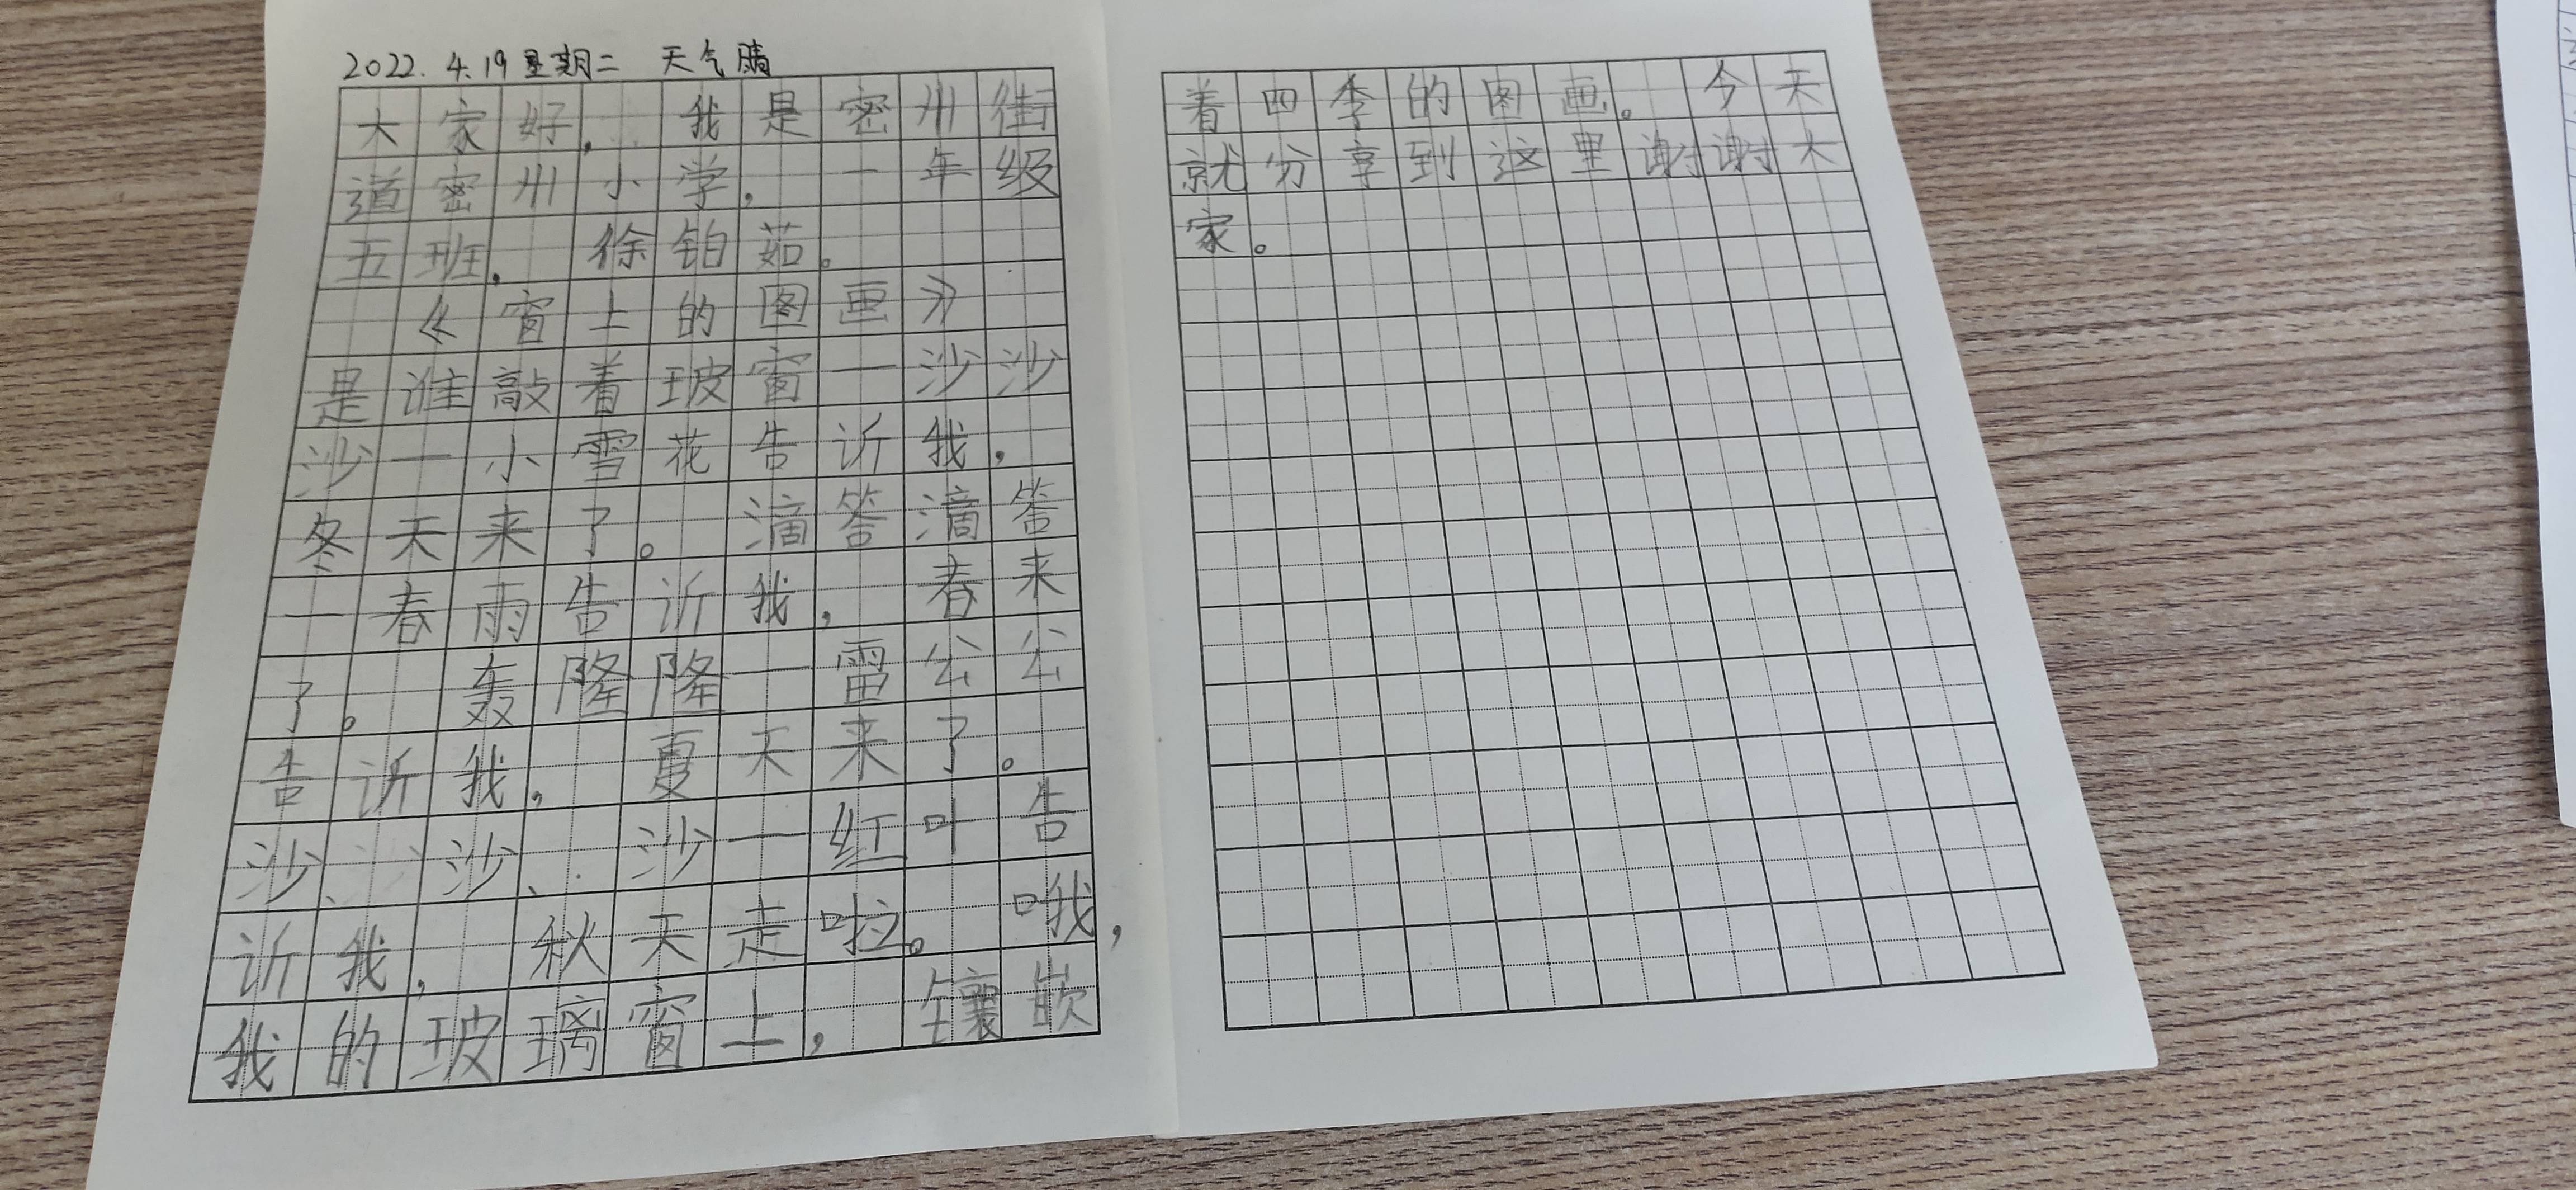 2022.4.19 星期二 天气晴
大家好，我是密州街
道密州小学，一年级
五班，徐铂茹。
《窗上的图画》
是谁敲着玻窗—沙沙
沙—小雪花告诉我，
冬天来了。滴答滴答
—春雨告诉我，春来
了。轰隆隆—雷公公
告诉我，夏天来了。
沙、沙、沙—红叶告
诉我，秋天走啦。哦，
我的玻璃窗上，镶嵌
着四季的图画。今天
就分享到这里谢谢大
家。